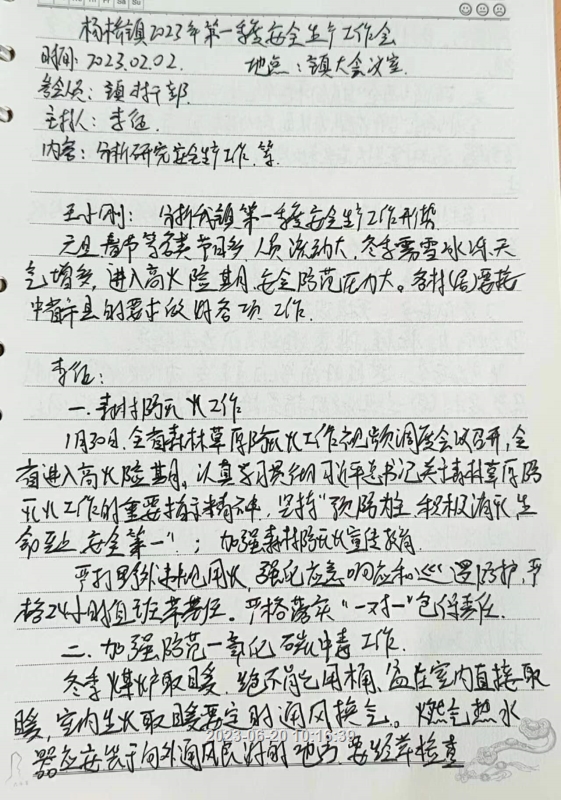 杨桥镇2023年第一季度安全生产工作会
时间:2023.02.02. 地点:镇大会议室.
参会人员:镇村干部.
主持人:李征.
内容:分析研究安全生产工作.等.
王小刚:分析我镇第一季度安全生产工作形势
元旦春节等各类节日多,人员流动大,冬季雾雪冰冻天
气增多,进入高火险期,安全防范压力大。各村(居)要按
中省市县的要求做好各项工作.
李征:
一.森林防灭火工作
1月30日.全省森林草原防灭火工作视频调度会议召开,全
省进入高火险期。认真学习贯彻习近平总书记关于森林草原防
灭火工作的重要指示精神,坚持"预防为主,积极消灭,生
命至上,安全第一";加强森林防灭火宣传教育.
严打野外违规用火,强化应急响应和巡逻防护,严
格24小时值班带班。严格落实"一对一"包保责任.
二.加强防范一氧化碳中毒工作.
冬季煤炉取暖,绝不简易用桶、盆在室内直接取
暖,室内生火取暖要定时通风换气。燃气热水
器应安装于向外通风良好的地方,要经常检查
2023-06-20 10:16:39